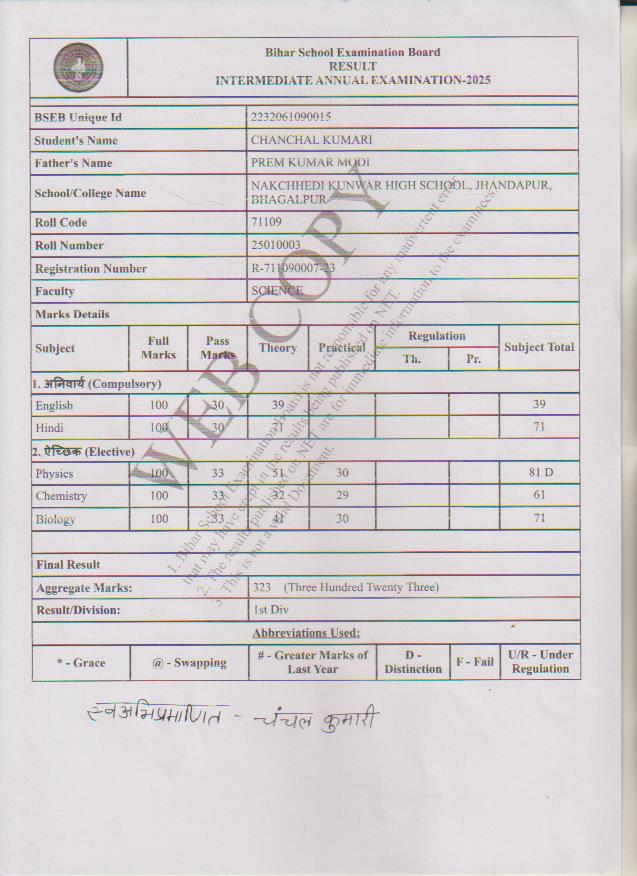 Bihar School Examination Board
RESULT
INTERMEDIATE ANNUAL EXAMINATION-2025
BSEB Unique Id 2232061090015
Student's Name CHANCHAL KUMARI
Father's Name PREM KUMAR MODI
School/College Name NAKCHHEDI KUNWAR HIGH SCHOOL, JHANDAPUR,
BHAGALPUR
Roll Code 71109
Roll Number 25010003
Registration Number R-711090007-23
Faculty SCIENCE
Marks Details
Subject Full Marks Pass Marks Theory Practical Regulation Subject Total
Th. Pr.
1. अनिवार्य (Compulsory)
English 100 30 39 39
Hindi 100 30 71 71
2. ऐच्छिक (Elective)
Physics 100 33 51 30 81 D
Chemistry 100 33 32 29 61
Biology 100 33 41 30 71
Final Result
Aggregate Marks: 323 (Three Hundred Twenty Three)
Result/Division: 1st Div
Abbreviations Used:
* - Grace @ - Swapping # - Greater Marks of Last Year D - Distinction F - Fail U/R - Under Regulation
WEB COPY
1. Bihar School Examination Board is not responsible for any inadvertent error
that may have crept in the results being published on NET.
2. The results published on NET are for immediate information to the examinees.
3. This is not a valid Document.
स्वअभिप्रमाणित - चंचल कुमारी